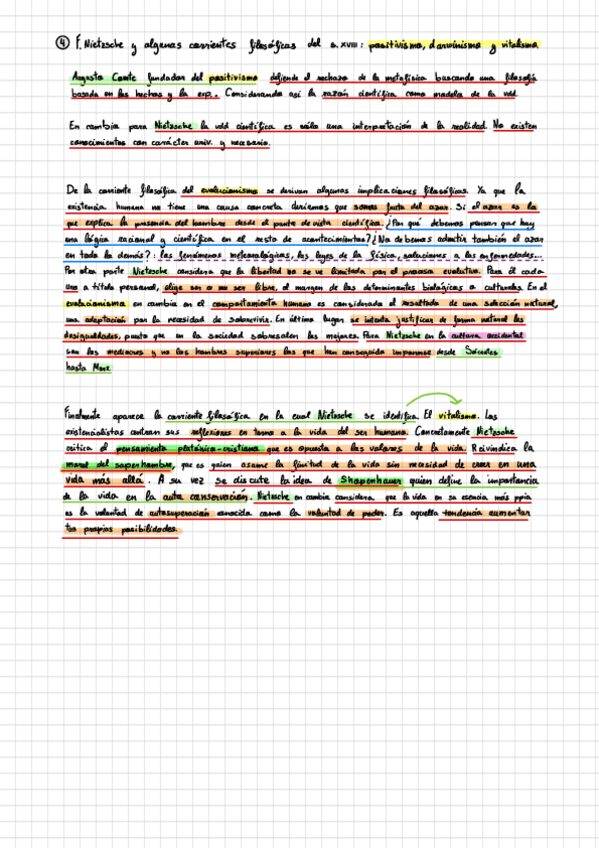 ④ F. Nietzsche y algunas corrientes filosóficas del s. XVIII: positivismo, darwinismo y vitalismo
Augusto Comte fundador del positivismo defiende el rechazo de la metafísica buscando una filosofía
basada en los hechos y la exp.. Considerando así la razón científica como modelo de la vdd.
En cambio para Nietzsche la vdd científica es sólo una interpretación de la realidad. No existen
conocimientos con carácter univ. y necesario.
De la corriente filosófica del evolucionismo se derivan algunas implicaciones filosóficas. Ya que la
existencia humana no tiene una causa concreta diríamos que somos fruto del azar. Si el azar es lo
que explica la presencia del hombre desde el punto de vista científico. ¿Por qué debemos pensar que hay
una lógica racional y científica en el resto de acontecimientos? ¿No debemos admitir también el azar
en todo lo demás?: los fenómenos meteorológicos, las leyes de la física, soluciones a las enfermedades...
Por otra parte Nietzsche considera que la libertad no se ve limitada por el proceso evolutivo. Para él cada
uno a título personal, elige ser o no ser libre, al margen de los determinantes biológicos o culturales. En el
evolucionismo en cambio en el comportamiento humano es considerado el resultado de una selección natural,
una adaptación por la necesidad de sobrevivir. En último lugar se intenta justificar de forma natural las
desigualdades, puesto que en la sociedad sobresalen los mejores. Para Nietzsche en la cultura occidental
son los mediocres y no los hombres superiores los que han conseguido imponerse desde Sócrates
hasta Marx
Finalmente aparece la corriente filosófica en la cual Nietzsche se identifica. El vitalismo. Los
existencialistas centran sus reflexiones en torno a la vida del ser humano. Concretamente Nietzsche
critica el pensamiento platónico-cristiano que es opuesto a los valores de la vida. Reivindica la
moral del superhombre, que es quien asume la finitud de la vida sin necesidad de creer en una
vida más allá. A su vez se discute la idea de Shopenhauer quien define la importancia
de la vida en la auto conservación. Nietzsche en cambio considera que la vida en su esencia más ppia
es la voluntad de autosuperación conocida como la voluntad de poder. Es aquella tendencia aumentar
tus propias posibilidades.